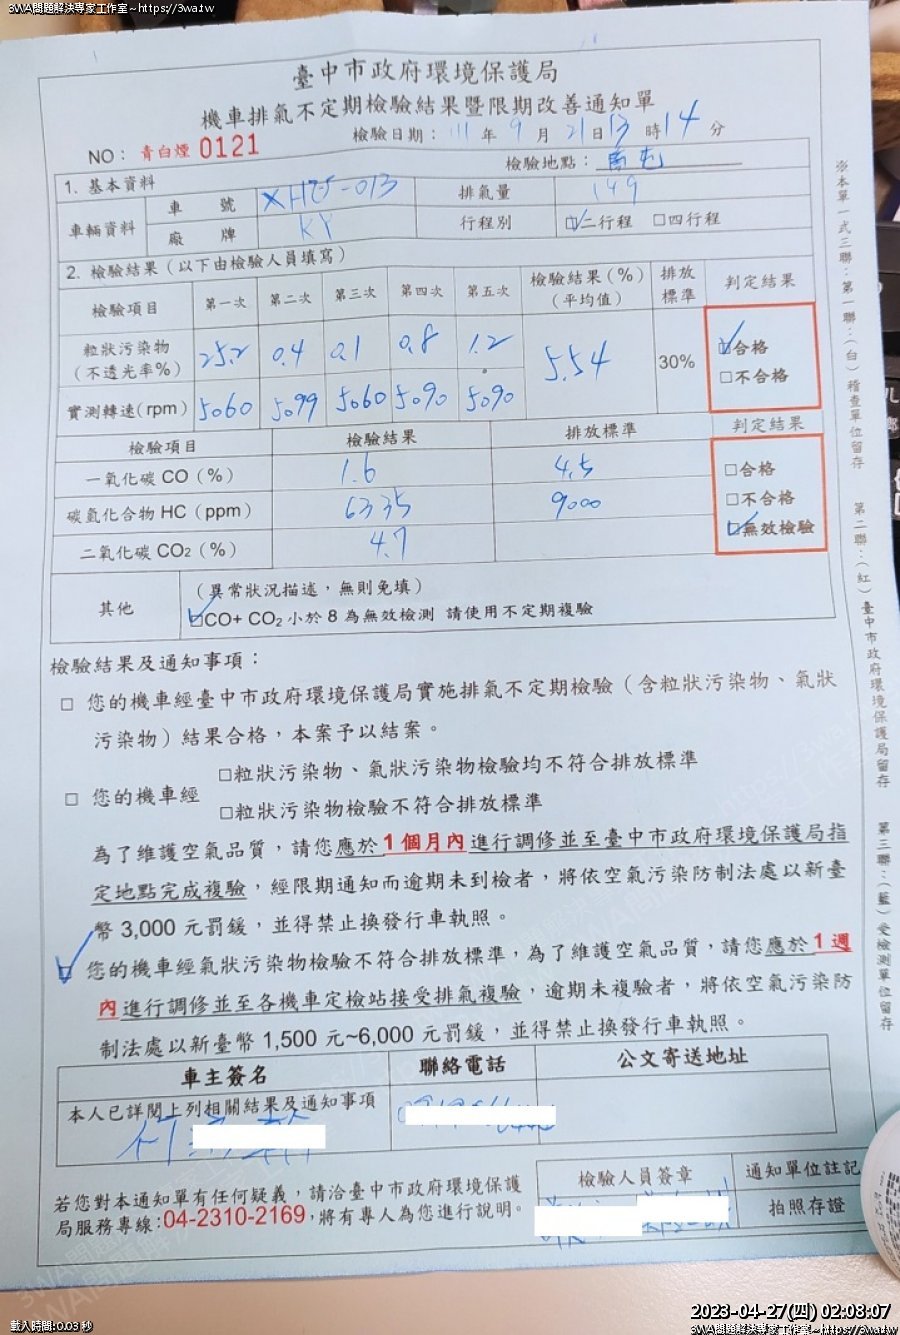 3WA問題解決專家工作室~https://3wa.tw
臺中市政府環境保護局
機車排氣不定期檢驗結果暨限期改善通知單
檢驗日期： 111 年 9 月 21 日 13 時 14 分
NO： 青白煙 0121
檢驗地點：
1. 基本資料
車輛資料 車 號 排氣量 149
廠 牌 KY 行程別 ☑二行程 □四行程
2. 檢驗結果（以下由檢驗人員填寫）
檢驗項目 第一次 第二次 第三次 第四次 第五次 檢驗結果（%）（平均值） 排放標準 判定結果
粒狀污染物（不透光率%） 25.2 0.4 0.1 0.8 1.2 5.54 30% ☑合格 □不合格
實測轉速(rpm) 5060 5099 5060 5090 5090
檢驗項目 檢驗結果 排放標準 判定結果
一氧化碳 CO（%） 1.6 4.5 □合格
碳氫化合物 HC（ppm） 6335 9000 □不合格
二氧化碳 CO2（%） 4.7 ☑無效檢驗
其他 （異常狀況描述，無則免填）
☑CO+ CO2 小於 8 為無效檢測 請使用不定期複驗
檢驗結果及通知事項：
□ 您的機車經臺中市政府環境保護局實施排氣不定期檢驗（含粒狀污染物、氣狀
污染物）結果合格，本案予以結案。
□粒狀污染物、氣狀污染物檢驗均不符合排放標準
□ 您的機車經
□粒狀污染物檢驗不符合排放標準
為了維護空氣品質，請您應於1個月內進行調修並至臺中市政府環境保護局指
定地點完成複驗，經限期通知而逾期未到檢者，將依空氣污染防制法處以新臺
幣 3,000 元罰鍰，並得禁止換發行車執照。
☑ 您的機車經氣狀污染物檢驗不符合排放標準，為了維護空氣品質，請您應於1週
內進行調修並至各機車定檢站接受排氣複驗，逾期未複驗者，將依空氣污染防
制法處以新臺幣 1,500 元~6,000 元罰鍰，並得禁止換發行車執照。
車主簽名 聯絡電話 公文寄送地址
本人已詳閱上列相關結果及通知事項
檢驗人員簽章 通知單位註記
拍照存證
若您對本通知單有任何疑義，請洽臺中市政府環境保護
局服務專線:04-2310-2169,將有專人為您進行說明。
※本單一式三聯：第一聯：（白）稽查單位留存 第二聯：（紅）臺中市政府環境保護局留存 第三聯：（藍）受檢測單位留存
載入時間:0.03 秒
2023-04-27(四) 02:08:07
3WA問題解決專家工作室~https://3wa.tw